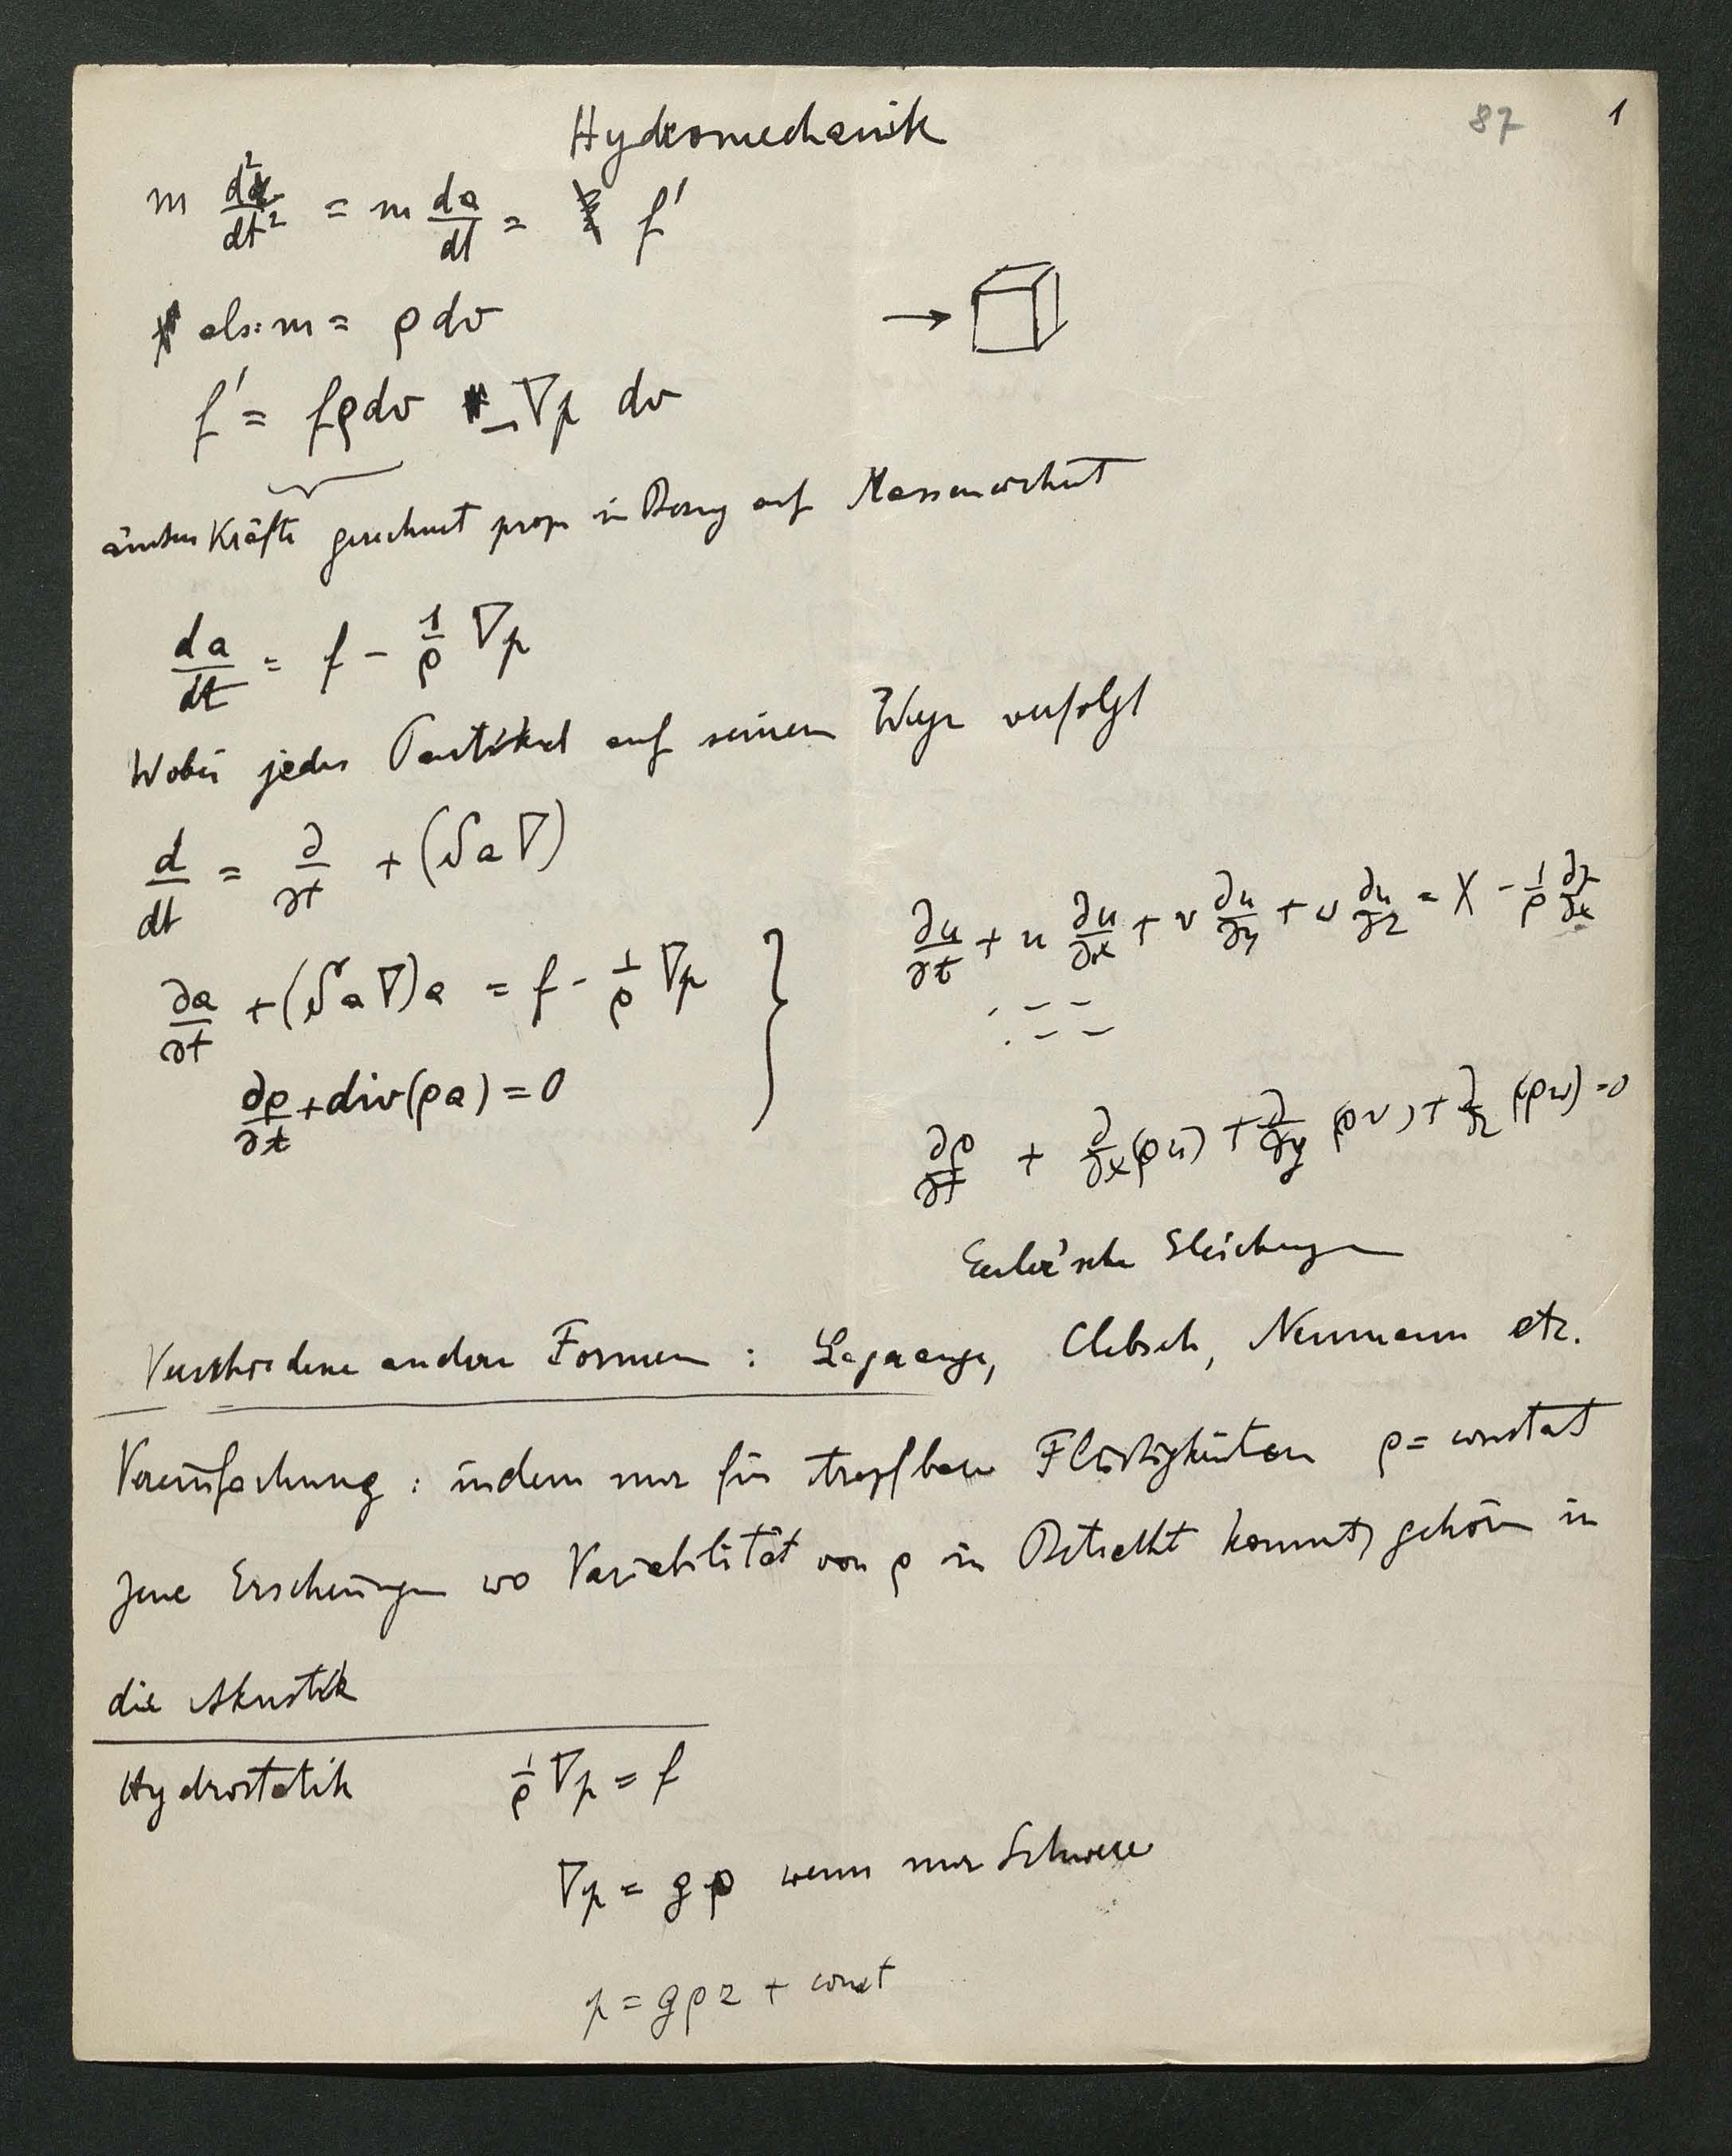 Hydromechanik
87 1
m d²x/dt² = m da/dt = f'
als: m = ρ dv
f' = fρdv - ∇p dv
Kräfte gerechnet in Bezug auf Masseneinheit
da/dt = f - 1/ρ ∇p
Wobei jedes Partikel auf seinem Wege verfolgt
d/dt = ∂/∂t + (S a ∇)
∂a/∂t + (S a ∇)a = f - 1/ρ ∇p }
∂ρ/∂t + div(ρa) = 0
∂u/∂t + u ∂u/∂x + v ∂u/∂y + w ∂u/∂z = X - 1/ρ ∂p/∂x
∂ρ/∂t + ∂/∂x(ρu) + ∂/∂y(ρv) + ∂/∂z(ρw) = 0
Euler'sche Gleichungen
Verschiedene andere Formen : Lagrange, Clebsch, Neumann etc.
Vereinfachung : indem nur für tropfbare Flüssigkeiten ρ = constat
Jene Erscheinungen wo Variabilität von ρ in Betracht kommt, gehören in
die Akustik
Hydrostatik 1/ρ ∇p = f
∇p = gρ wenn nur Schwere
p = gρz + const